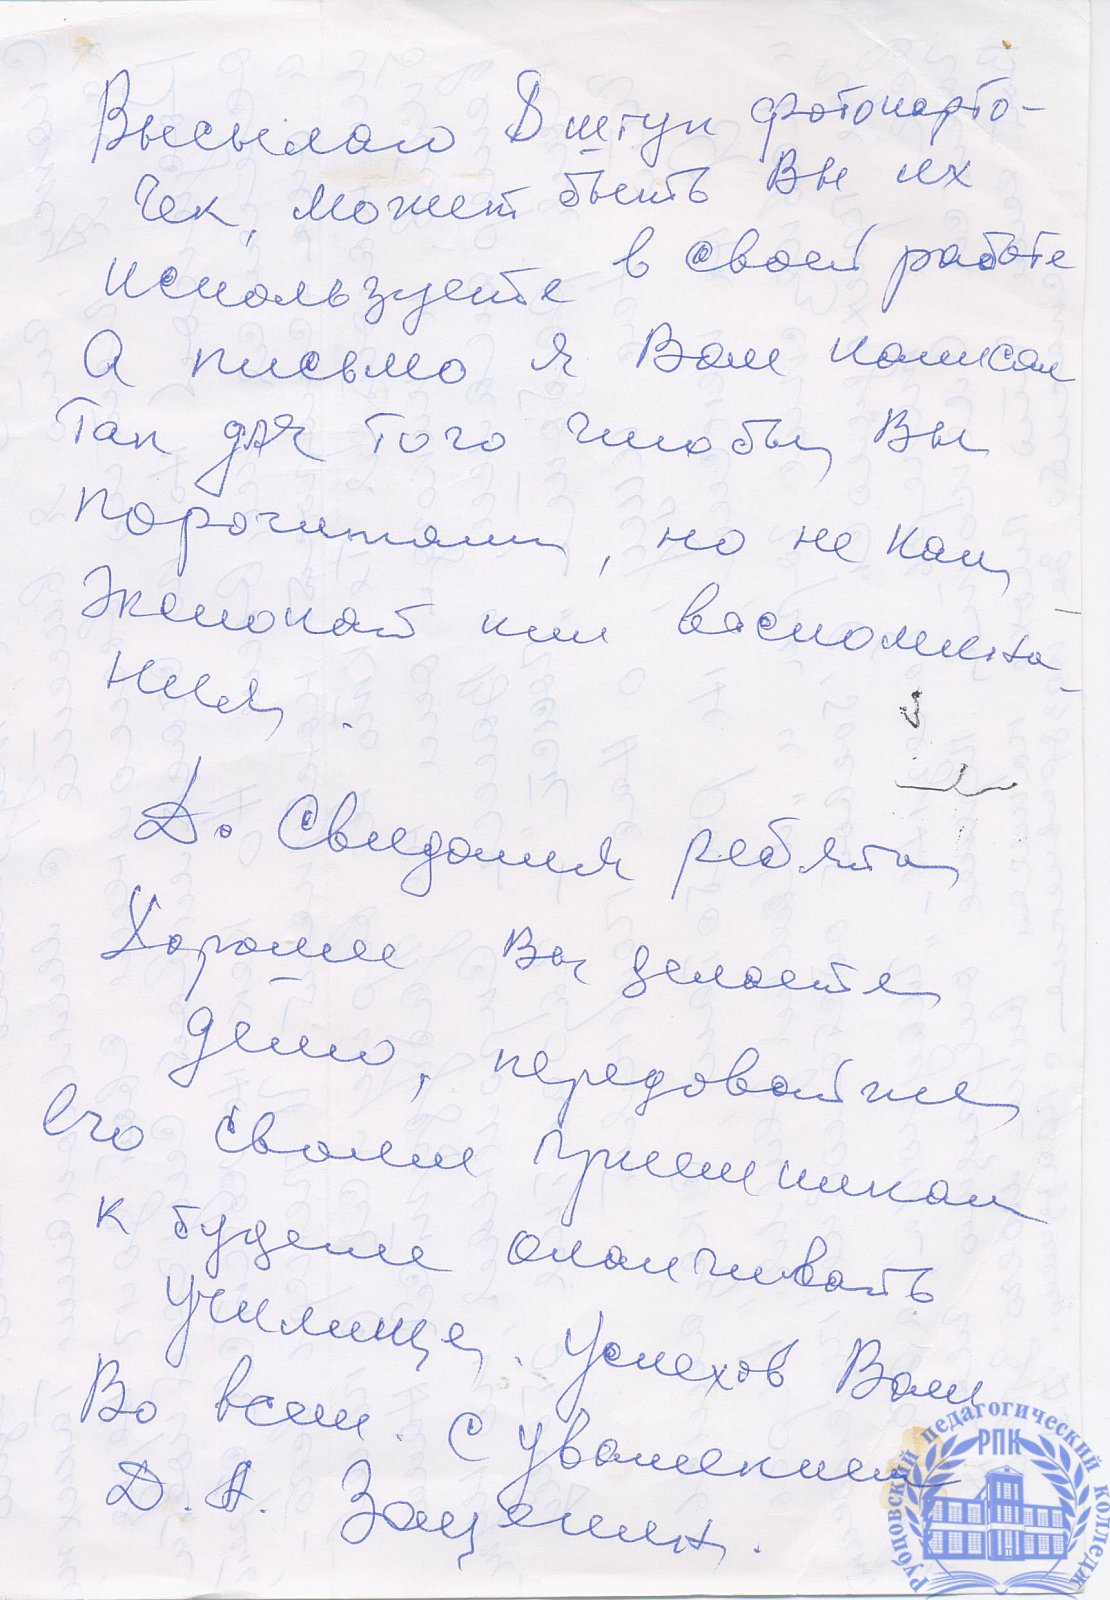 Высылаю 8 штук фотокарто-
чек, может быть Вы их
используете в своей работе
А письмо я Вам написал
так для того чтобы Вы
порочитали, но не как
экспонат или васпомина-
ния.
До Свидания ребята
Хорошее Вы делаете
дело, передовайте
его своим
к будете оканчивать
училище. Успехов Вам
Во всем. С уважением
Д. А.
Рубцовский педагогический колледж
РПК